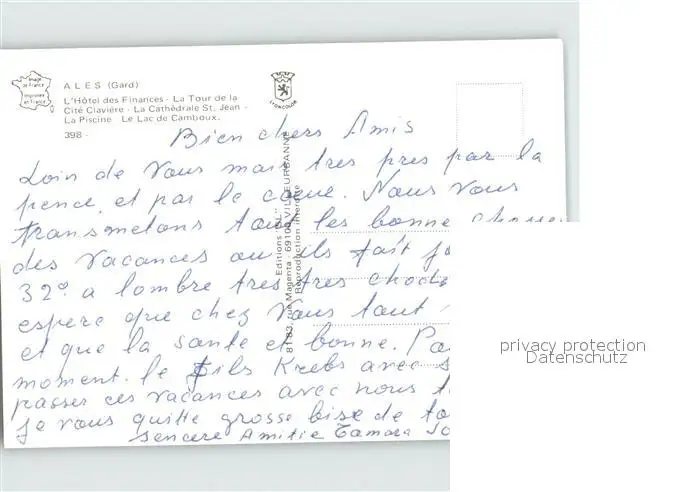 Image de France
Imprimée en France
ALES (Gard)
L'Hôtel des Finances - La Tour de la
Cité Clavière - La Cathédrale St. Jean -
La Piscine Le Lac de Camboux.
398 -
LYONCOLOR
Editions "PI"
81-83, rue Magenta - 69100 VILLEURBANNE
Reproduction interdite
Bien chers Amis
Loin de Vous mais tres pres par la
pence, et par le coeue. Nous Vous
transmetons tout les bonne choses
des vacances ou ils fait
32° a lombre tres tres
espere que chez Vous tout
et que la sante et bonne.
moment. le fils Krebs avec
passer ces vacances avec nous
je vous quitte grosse bise de
sencere Amitie Tamara
privacy protection
Datenschutz